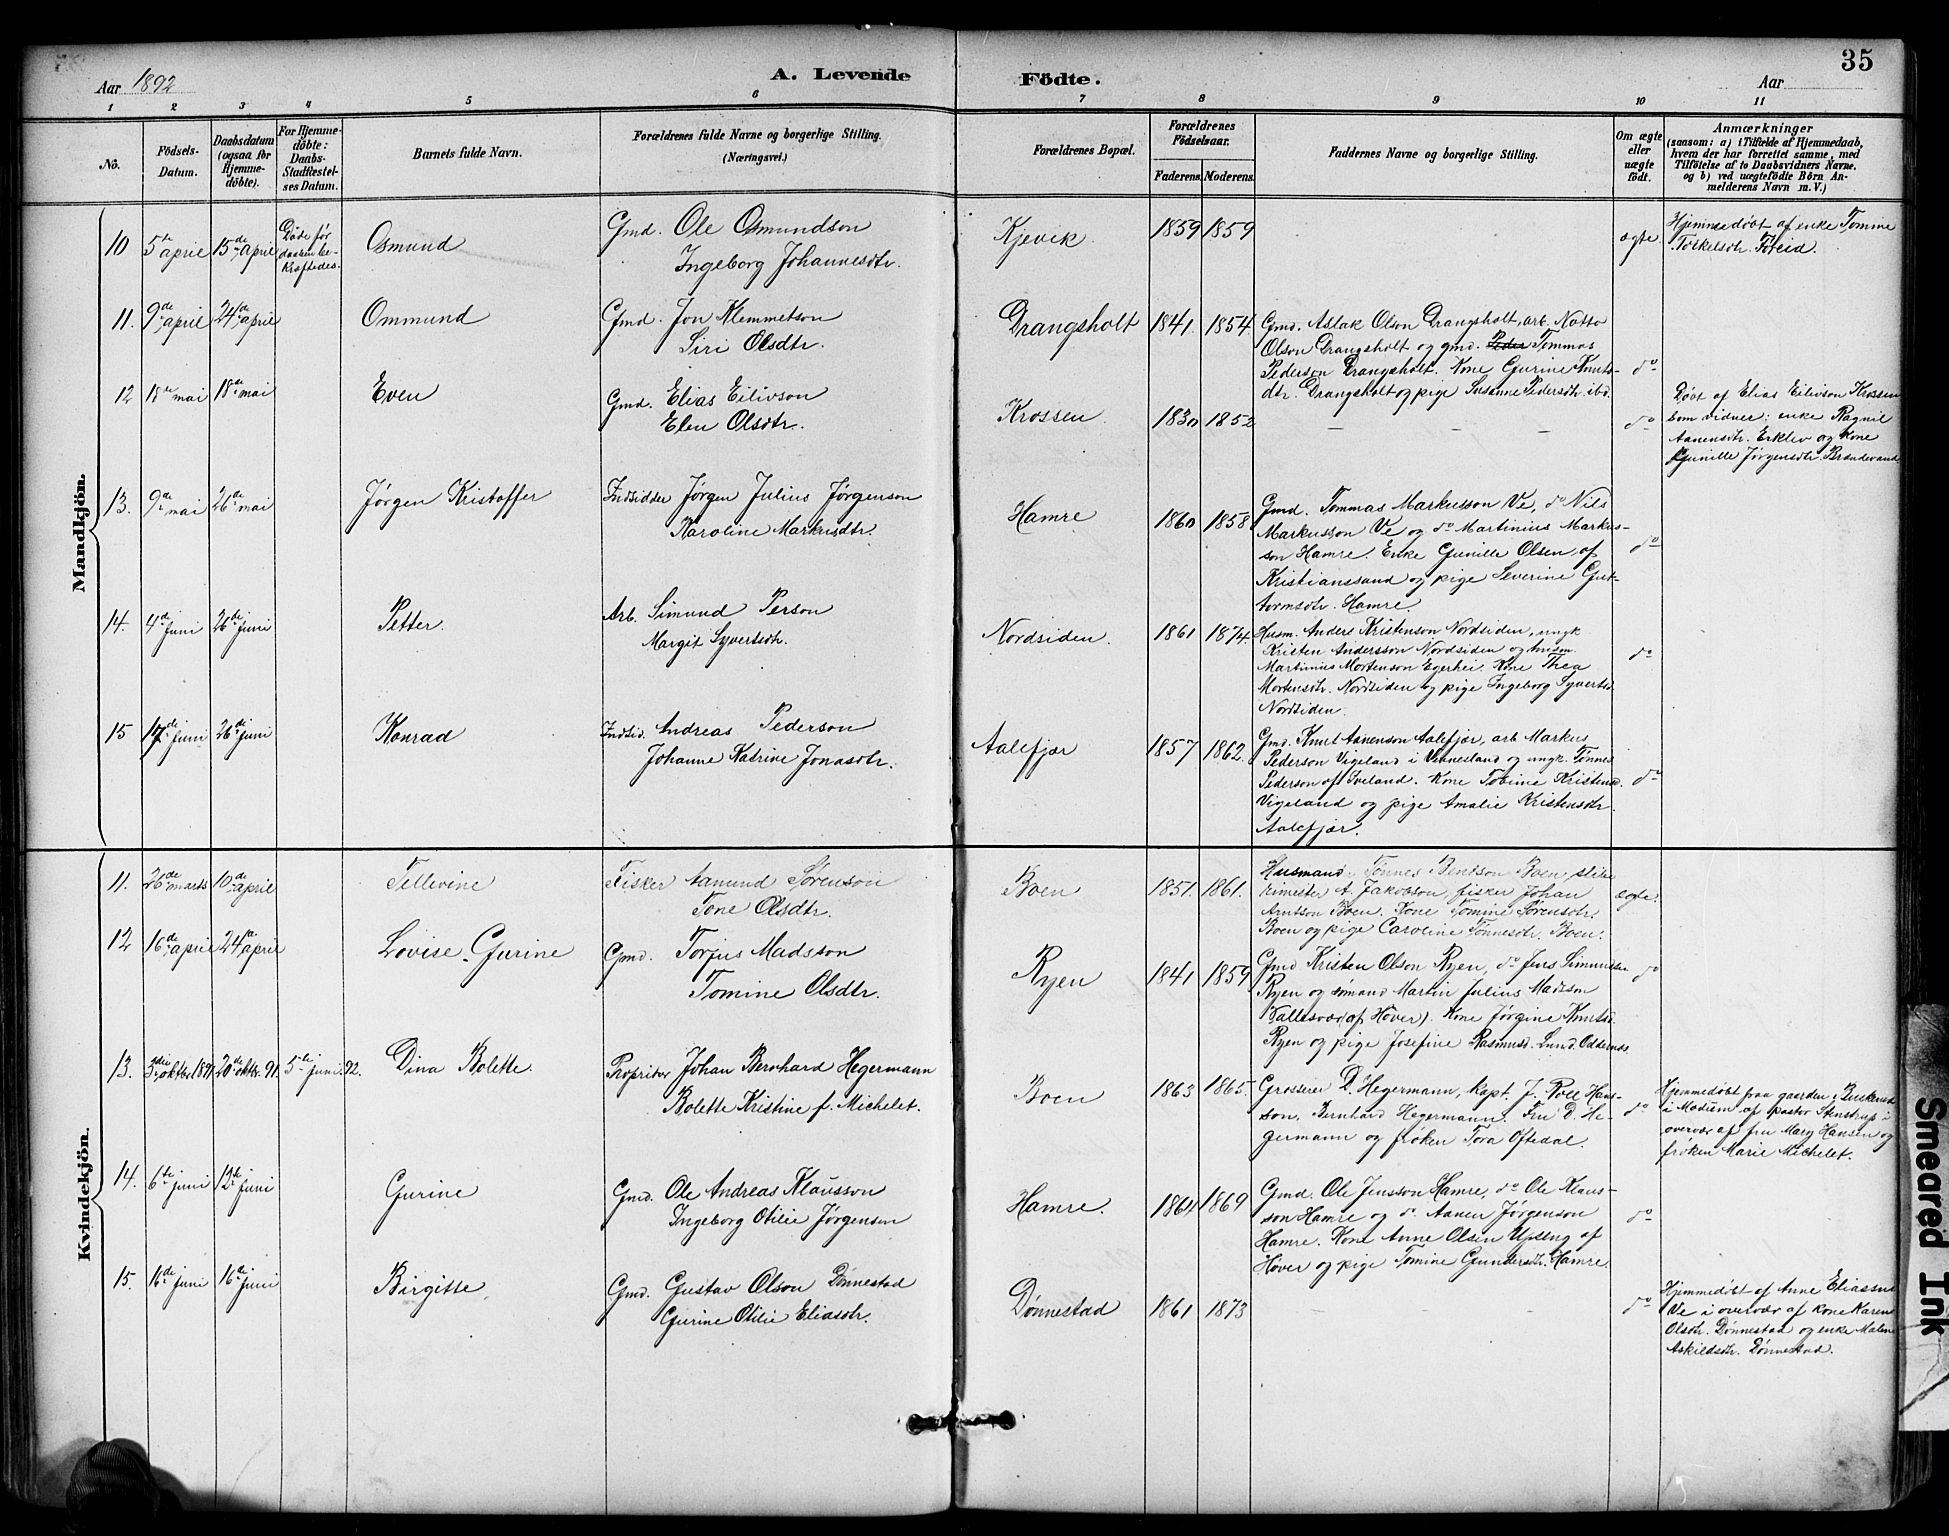 35
Aar 1892
A. Levende
Födte.
Aar
1 2 3 4 5 6 7 8 9 10 11
No.
Födsels-
Datum.
Daabsdatum
(ogsaa for
Hjemme-
döbte).
For Hjemme-
döbte:
Daabs-
Stadfæstel-
ses Datum.
Barnets fulde Navn.
Forældrenes fulde Navne og borgerlige Stilling.
(Næringsvei.)
Forældrenes Bopæl.
Forældrenes
Födselsaar.
Faderens. Moderens.
Faddernes Navne og borgerlige Stilling.
Om ægte
eller
uægte
födt.
Anmærkninger
(sansom: a) i Tilfælde af Hjemmedaab,
hvem der har forrettet samme, med
Tilföielse af to Daabsvidners Navne.
og b) ved uægtefödte Börn An-
melderens Navn m. V.)
Mandkjön.
10 5te april 15de april Døde før
daaben be-
kræftedes.
Osmund
Gmd. Ole Osmundson
Ingeborg Johannesdtr.
Kjevik. 1859 1859
ægte.
Hjemmedøbt af enke Tomine
Torkelsdtr. Føreid.
11. 9de april 24de april
Ommund
Gmd. Jon Klemmetson
Siri Olsdtr.
Drangsholt 1841. 1854.
Gmd. Aslak Olson Drangsholt, arb. Notto
Olson Drangsholt og gmd. Peder Tommas
Pederson Drangsholt. Kone Gurine Knuts-
dtr. Drangsholt og pige Susanne Pedersdtr. ibd.
do
12 18de mai 18de mai
Even
Gmd. Elias Eilivson
Elen Olsdtr.
Krossen. 1830 1852
– – –
do
Døbt af Elias Eilivson Krossen
som vidner: enke Ragnil
Aanensdtr. Erkleiv og Kone
Gunille Jørgensdtr. Brandevand
13. 9de mai 26de mai
Jørgen Kristoffer
Indsidder Jørgen Julius Jørgenson
Karoline Markusdtr.
Hamre 1860 1858
Gmd. Tommas Markusson Ve, do Nils
Markusson Ve og do Martinius Markus-
son Hamre. Enke Gunille Olsen af
Kristianssand og pige Severine Gut-
tormsdtr. Hamre.
do
14. 4de juni 26de juni
Petter.
Arb. Simund Person
Margit Syvertsdtr.
Nordsiden. 1861 1874.
Husm. Anders Kristenson Nordsiden, ungk
Kristen Andersson Nordsiden og husm.
Martinius Mortenson Egerhei. Kone Thea
Mortensdtr. Nordsiden og pige Ingeborg Syvertsd.
Nordsiden.
do
15 17de juni 26de juni
Konrad
Indsid. Andreas Pederson
Johanne Katrine Jonasdtr.
Aalefjær 1857 1862.
Gmd. Knut Aanenson Aalefjær, arb Markus
Pederson Vigeland i Vennesland og ungk. Tønnes
Pederson af Sveland. Kone Tobine Kristensd.
Vigeland og pige Amalie Kristensdtr.
Aalefjær.
do
Kvindekjön.
11. 26de marts 10de april
Tellevine
Fisker Aamund Sørenson
Tone Olsdtr.
Boen 1851. 1861.
Husmand Tønnes Bentson Boen, slibe
rimester A. Jakobson, fisker Johan
Arntson Boen. Kone Tomine Sørensdtr.
Boen og pige Caroline Tønnesdtr. Boen.
ægte.
12 16de april 24de april
Lovise Gurine
Gmd. Torjus Madsson
Tomine Olsdtr.
Ryen 1841 1859
Gmd Kristen Olson Ryen, do Jens Simundsen
Ryen og sømand Martin Julius Madsson
(af Høver). Kone Jørgine Knutsd.
Ryen og pige Josefine Rasmusd. Lund. Oddernes.
do
13. 3die oktbr. 1891 20de oktbr. 91. 5te juni 92.
Dina Bolette.
Propritær Johan Bernhard Hegermann
Bolette Kristine f. Michelet.
Boen 1863 1865
Grosserer D. Hegermann, kapt. J. Roll Hans-
son, Bernhard Hegermann. Fru D. He-
germann og frøken Tora Oftedal.
do
Hjemmedøbt paa gaarden Buskerud
i Modum af pastor Stenstrup i
overvær af fru Mary Hansen og
frøken Marie Michelet.
14. 6te juni 12de juni
Gurine
Gmd. Ole Andreas Klausson
Ingeborg Otilie Jørgensen
Hamre. 1864 1869
Gmd. Ole Jensson Hamre, do Ole Klaus-
son Hamre og do Aanen Jørgenson
Hamre. Kone Anne Olsen Upseng af
Høver og pige Tomine Gundersdtr. Hamre.
do
15. 16de juni 16de juni
Birgitte
Gmd. Gustav Olson Dønnestad
Gurine Otilie Eliasdtr.
Dønnestad 1861 1873
– – –
do
Hjemmedøbt af Anne Eliassen
Ve i overvær af kone Karen
Olsdtr. Dønnestad og enke Malene
Askildsdtr. Dønnestad.
Smeared Ink